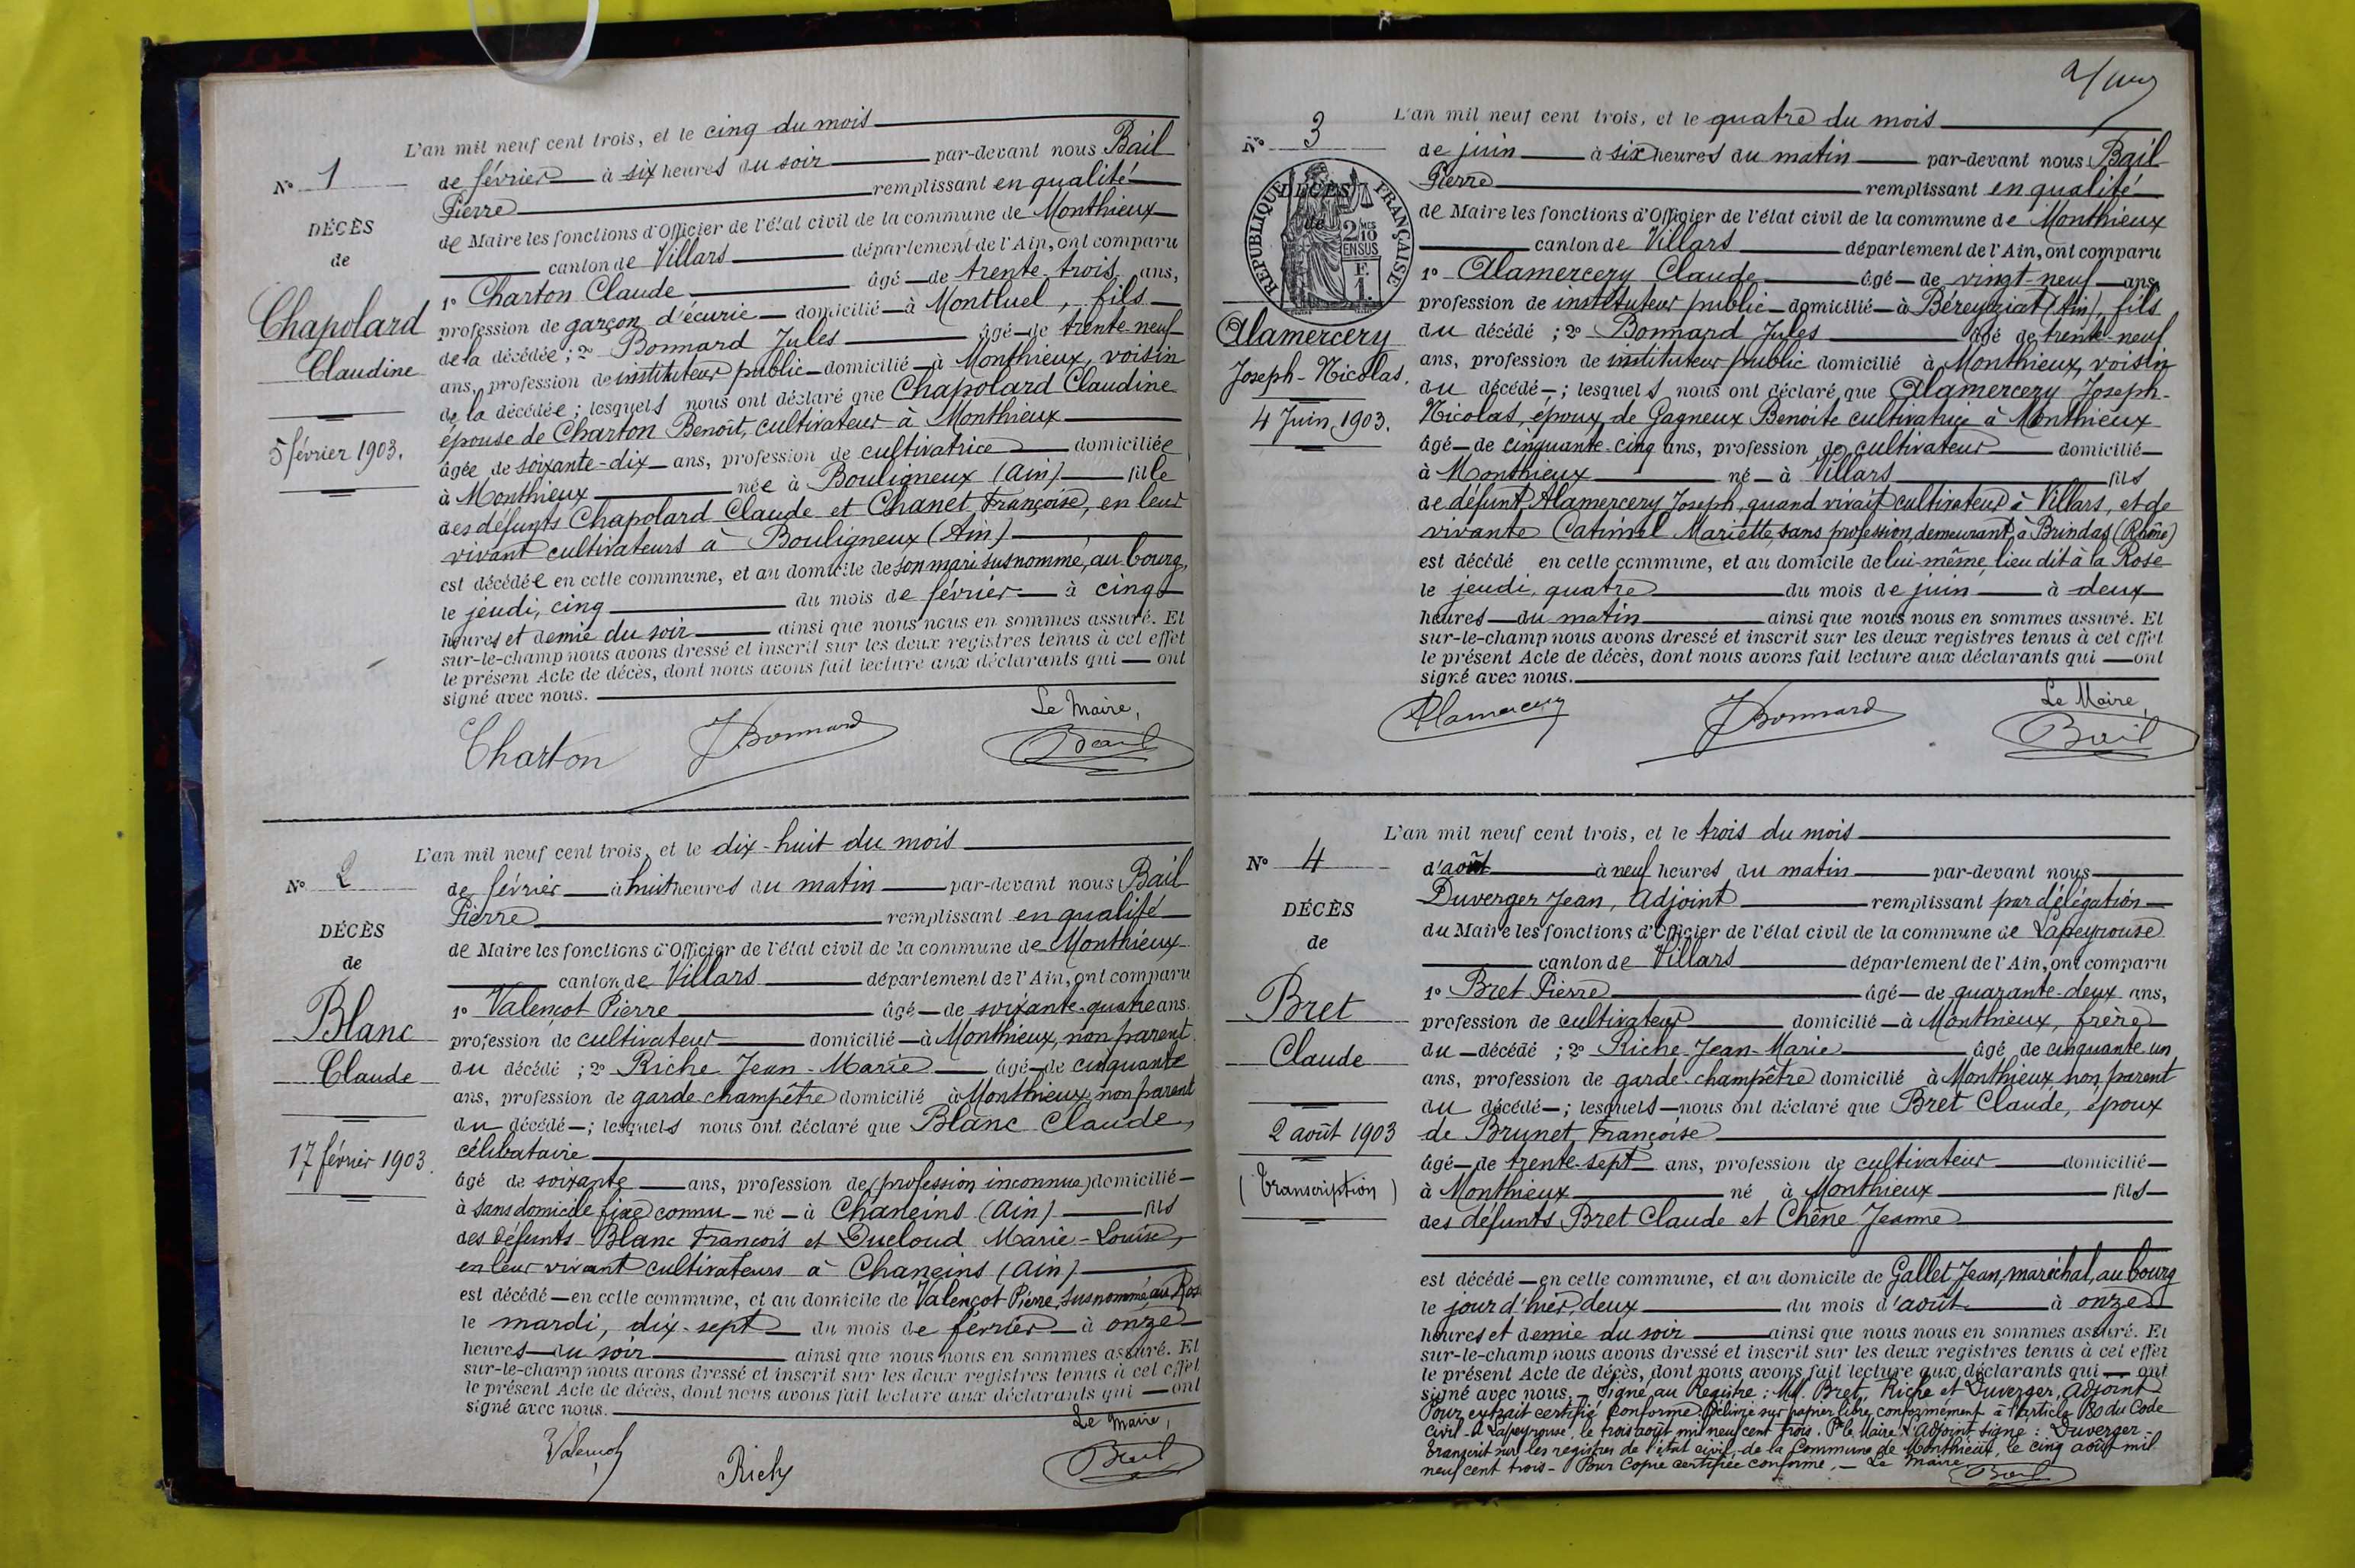 L'an mil neuf cent trois, et le cinq du mois
N° 1
de février à six heures du soir par-devant nous Bail
Pierre remplissant en qualité
DÉCÈS
de Maire les fonctions d'Officier de l'état civil de la commune de Monthieux
de
canton de Villars département de l'Ain, ont comparu
1° Charton Claude âgé de trente-trois ans,
Chapolard
profession de garçon d'écurie domicilié à Montluel, fils
de la décédée; 2° Bonnard Jules âgé de trente-neuf
Claudine
ans, profession de instituteur public domicilié à Monthieux, voisin
de la décédée; lesquels nous ont déclaré que Chapolard Claudine
épouse de Charton Benoit, cultivateur à Monthieux
5 février 1903.
âgée de soixante-dix ans, profession de cultivatrice domiciliée
à Monthieux née à Bouligneux (Ain) fille
des défunts Chapolard Claude et Chanet Françoise, en leur
vivant cultivateurs à Bouligneux (Ain)
est décédée en cette commune, et au domicile de son mari susnommé, au bourg,
le jeudi, cinq du mois de février à cinq
heures et demie du soir ainsi que nous nous en sommes assuré. Et
sur-le-champ nous avons dressé et inscrit sur les deux registres tenus à cet effet
le présent Acte de décès, dont nous avons fait lecture aux déclarants qui ont
signé avec nous.
Le Maire,
Charton JBonnard Bail
L'an mil neuf cent trois, et le dix-huit du mois
N° 2
de février à huit heures du matin par-devant nous Bail
Pierre remplissant en qualité
DÉCÈS
de Maire les fonctions d'Officier de l'état civil de la commune de Monthieux
de
canton de Villars département de l'Ain, ont comparu
1° Valençot Pierre âgé de soixante-quatre ans.
Blanc
profession de cultivateur domicilié à Monthieux, non parent
du décédé; 2° Riche Jean-Marie âgé de cinquante
Claude
ans, profession de garde-champêtre domicilié à Monthieux, non parent
du décédé; lesquels nous ont déclaré que Blanc Claude,
17 février 1903.
célibataire
âgé de soixante ans, profession de (profession inconnue) domicilié
à sans domicile fixe connu né à Chaneins (Ain) fils
des défunts Blanc François et Ducloud Marie-Louise,
en leur vivant cultivateurs à Chaneins (Ain)
est décédé en cette commune, et au domicile de Valençot Pierre, susnommé, au Ros
le mardi, dix-sept du mois de février à onze
heures du soir ainsi que nous nous en sommes assuré. Et
sur-le-champ nous avons dressé et inscrit sur les deux registres tenus à cet effet
le présent Acte de décès, dont nous avons fait lecture aux déclarants qui ont
signé avec nous.
Le Maire,
Valençot Riche Bail
L'an mil neuf cent trois, et le quatre du mois
N° 3
de juin à six heures du matin par-devant nous Bail
Pierre remplissant en qualité
DÉCÈS
de
RÉPUBLIQUE FRANÇAISE
2/10 EN SUS
F. 1.
de Maire les fonctions d'Officier de l'état civil de la commune de Monthieux
canton de Villars département de l'Ain, ont comparu
1° Alamercery Claude âgé de vingt-neuf ans,
profession de instituteur public domicilié à Béreyziat (Ain), fils
Alamercery
du décédé; 2° Bonnard Jules âgé de trente-neuf
ans, profession de instituteur public domicilié à Monthieux, voisin
Joseph-Nicolas.
du décédé; lesquels nous ont déclaré que Alamercery Joseph-
4 Juin 1903.
Nicolas, époux de Gagneux Benoite cultivatrice à Monthieux
âgé de cinquante-cinq ans, profession de cultivateur domicilié
à Monthieux né à Villars fils
de défunt Alamercery Joseph, quand vivait cultivateur à Villars, et de
vivante Catimel Mariette, sans profession, demeurant à Brindas (Rhône)
est décédé en cette commune, et au domicile de lui-même, lieu dit à la Rose
le jeudi, quatre du mois de juin à deux
heures du matin ainsi que nous nous en sommes assuré. Et
sur-le-champ nous avons dressé et inscrit sur les deux registres tenus à cet effet
le présent Acte de décès, dont nous avons fait lecture aux déclarants qui ont
signé avec nous.
Le Maire,
Alamercery JBonnard Bail
L'an mil neuf cent trois, et le trois du mois
N° 4
d'août à neuf heures du matin par-devant nous
Duverger Jean, Adjoint remplissant par délégation
DÉCÈS
du Maire les fonctions d'Officier de l'état civil de la commune de Lapeyrouse
de
canton de Villars département de l'Ain, ont comparu
1° Bret Pierre âgé de quarante-deux ans,
Bret
profession de cultivateur domicilié à Monthieux, frère
Claude
du décédé; 2° Riche Jean-Marie âgé de cinquante un
ans, profession de garde-champêtre domicilié à Monthieux, non parent
du décédé; lesquels nous ont déclaré que Bret Claude, époux
2 août 1903
de Brunet Françoise
âgé de trente-sept ans, profession de cultivateur domicilié
(Transcription)
à Monthieux né à Monthieux fils
des défunts Bret Claude et Chêne Jeanne
est décédé en cette commune, et au domicile de Gallet Jean, maréchal, au bourg
le jour d'hier, deux du mois d'août à onze
heures et demie du soir ainsi que nous nous en sommes assuré. Et
sur-le-champ nous avons dressé et inscrit sur les deux registres tenus à cet effet
le présent Acte de décès, dont nous avons fait lecture aux déclarants qui ont
signé avec nous. Signé au Registre: MM. Bret, Riche et Duverger, Adjoint
Pour extrait certifié conforme. Délivré sur papier libre, conformément à l'article 80 du Code
Civil. A Lapeyrouse, le trois août mil neuf cent trois. Pr le Maire l'Adjoint signé: Duverger.
Transcrit sur les registres de l'état civil de la Commune de Monthieux, le cinq août mil
neuf cent trois - Pour Copie certifiée conforme, - Le Maire Bail